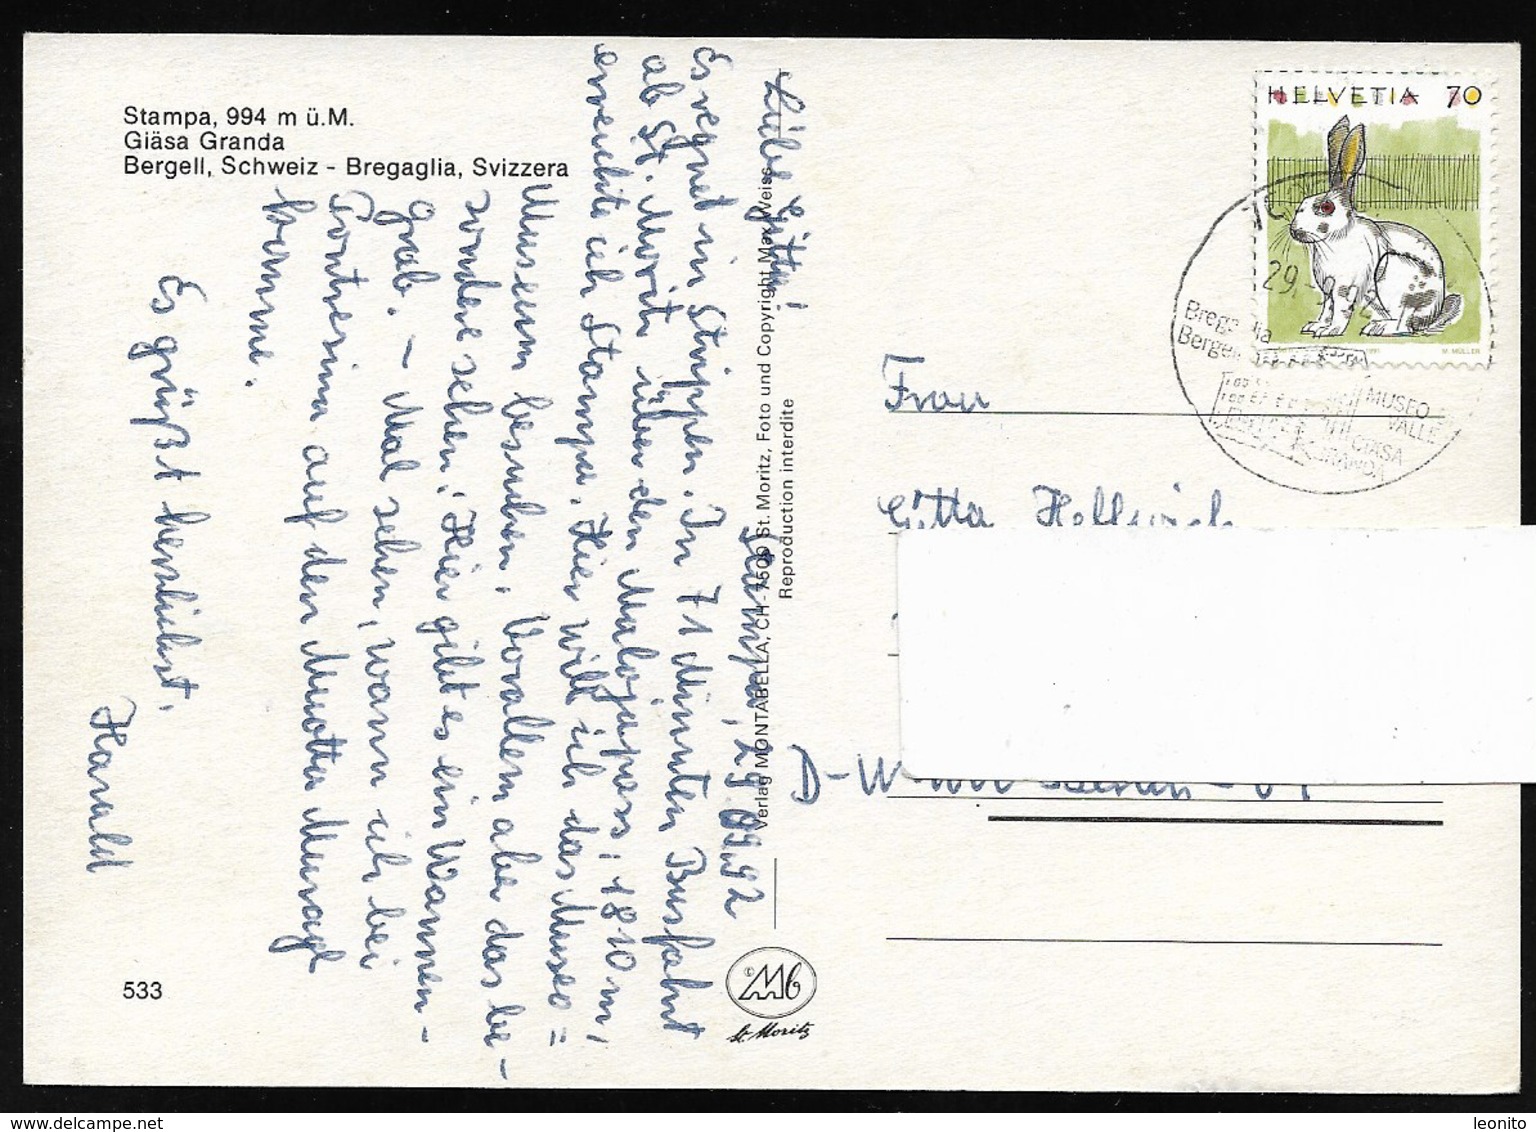 Stampa, 994 m ü.M.
Giäsa Granda
Bergell, Schweiz - Bregaglia, Svizzera
Stampa, 29.09.92
Liebe Gitta!
Es regnet in Strippen. In 71 Minuten Busfahrt
ab St. Moritz über den Malojapass, 1810 m,
erreichte ich Stampa. Hier will ich das Museo=
Museum besuchen. Vor allem aber das be-
sondere sehen. Hier gibt es ein Wannen-
grab. - Mal sehen, wann ich bei
Pontresina auf den Muotta Muragl
komme.
Es grüßt herzlichst,
Harald
533
Verlag MONTABELLA, CH - 7500 St. Moritz, Foto und Copyright Max Weiss
Reproduction interdite
Mb
St. Moritz
HELVETIA 70
M. MÜLLER
29.-9.92
Bregaglia
Bergell
MUSEO
VALLE
CIÄSA
GRANDA
Frau
Gitta
D-W-
leonito